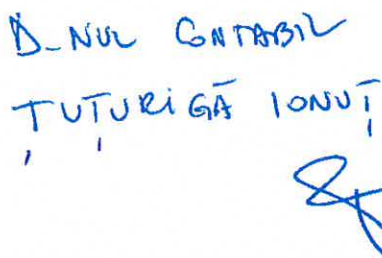 D-NUL CONTABIL
ȚUȚURIGĂ IONUȚ